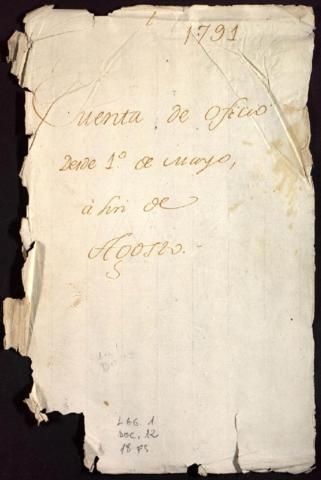 1791
Cuenta de oficio
Desde 1º de Marzo,
à fin de
Agosto.
LEG. 1
DOC. 12
18 FS